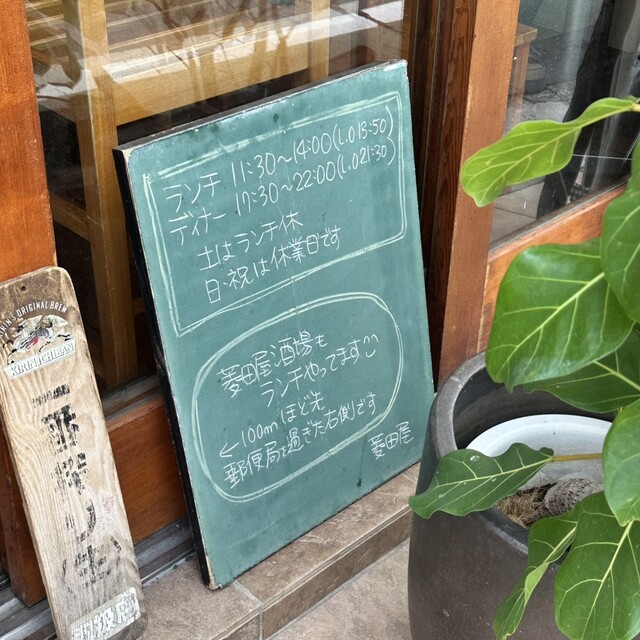 ランチ 11:30〜14:00(L.O 13:50)
ディナー 17:30〜22:00(L.O 21:30)
土はランチ休
日・祝は休業日です
菱田屋酒場も
ランチやってます
←100mほど先
郵便局を過ぎた右側です
菱田屋
ORIGINAL BREW
KIRIN ICHIBAN
一番搾り生